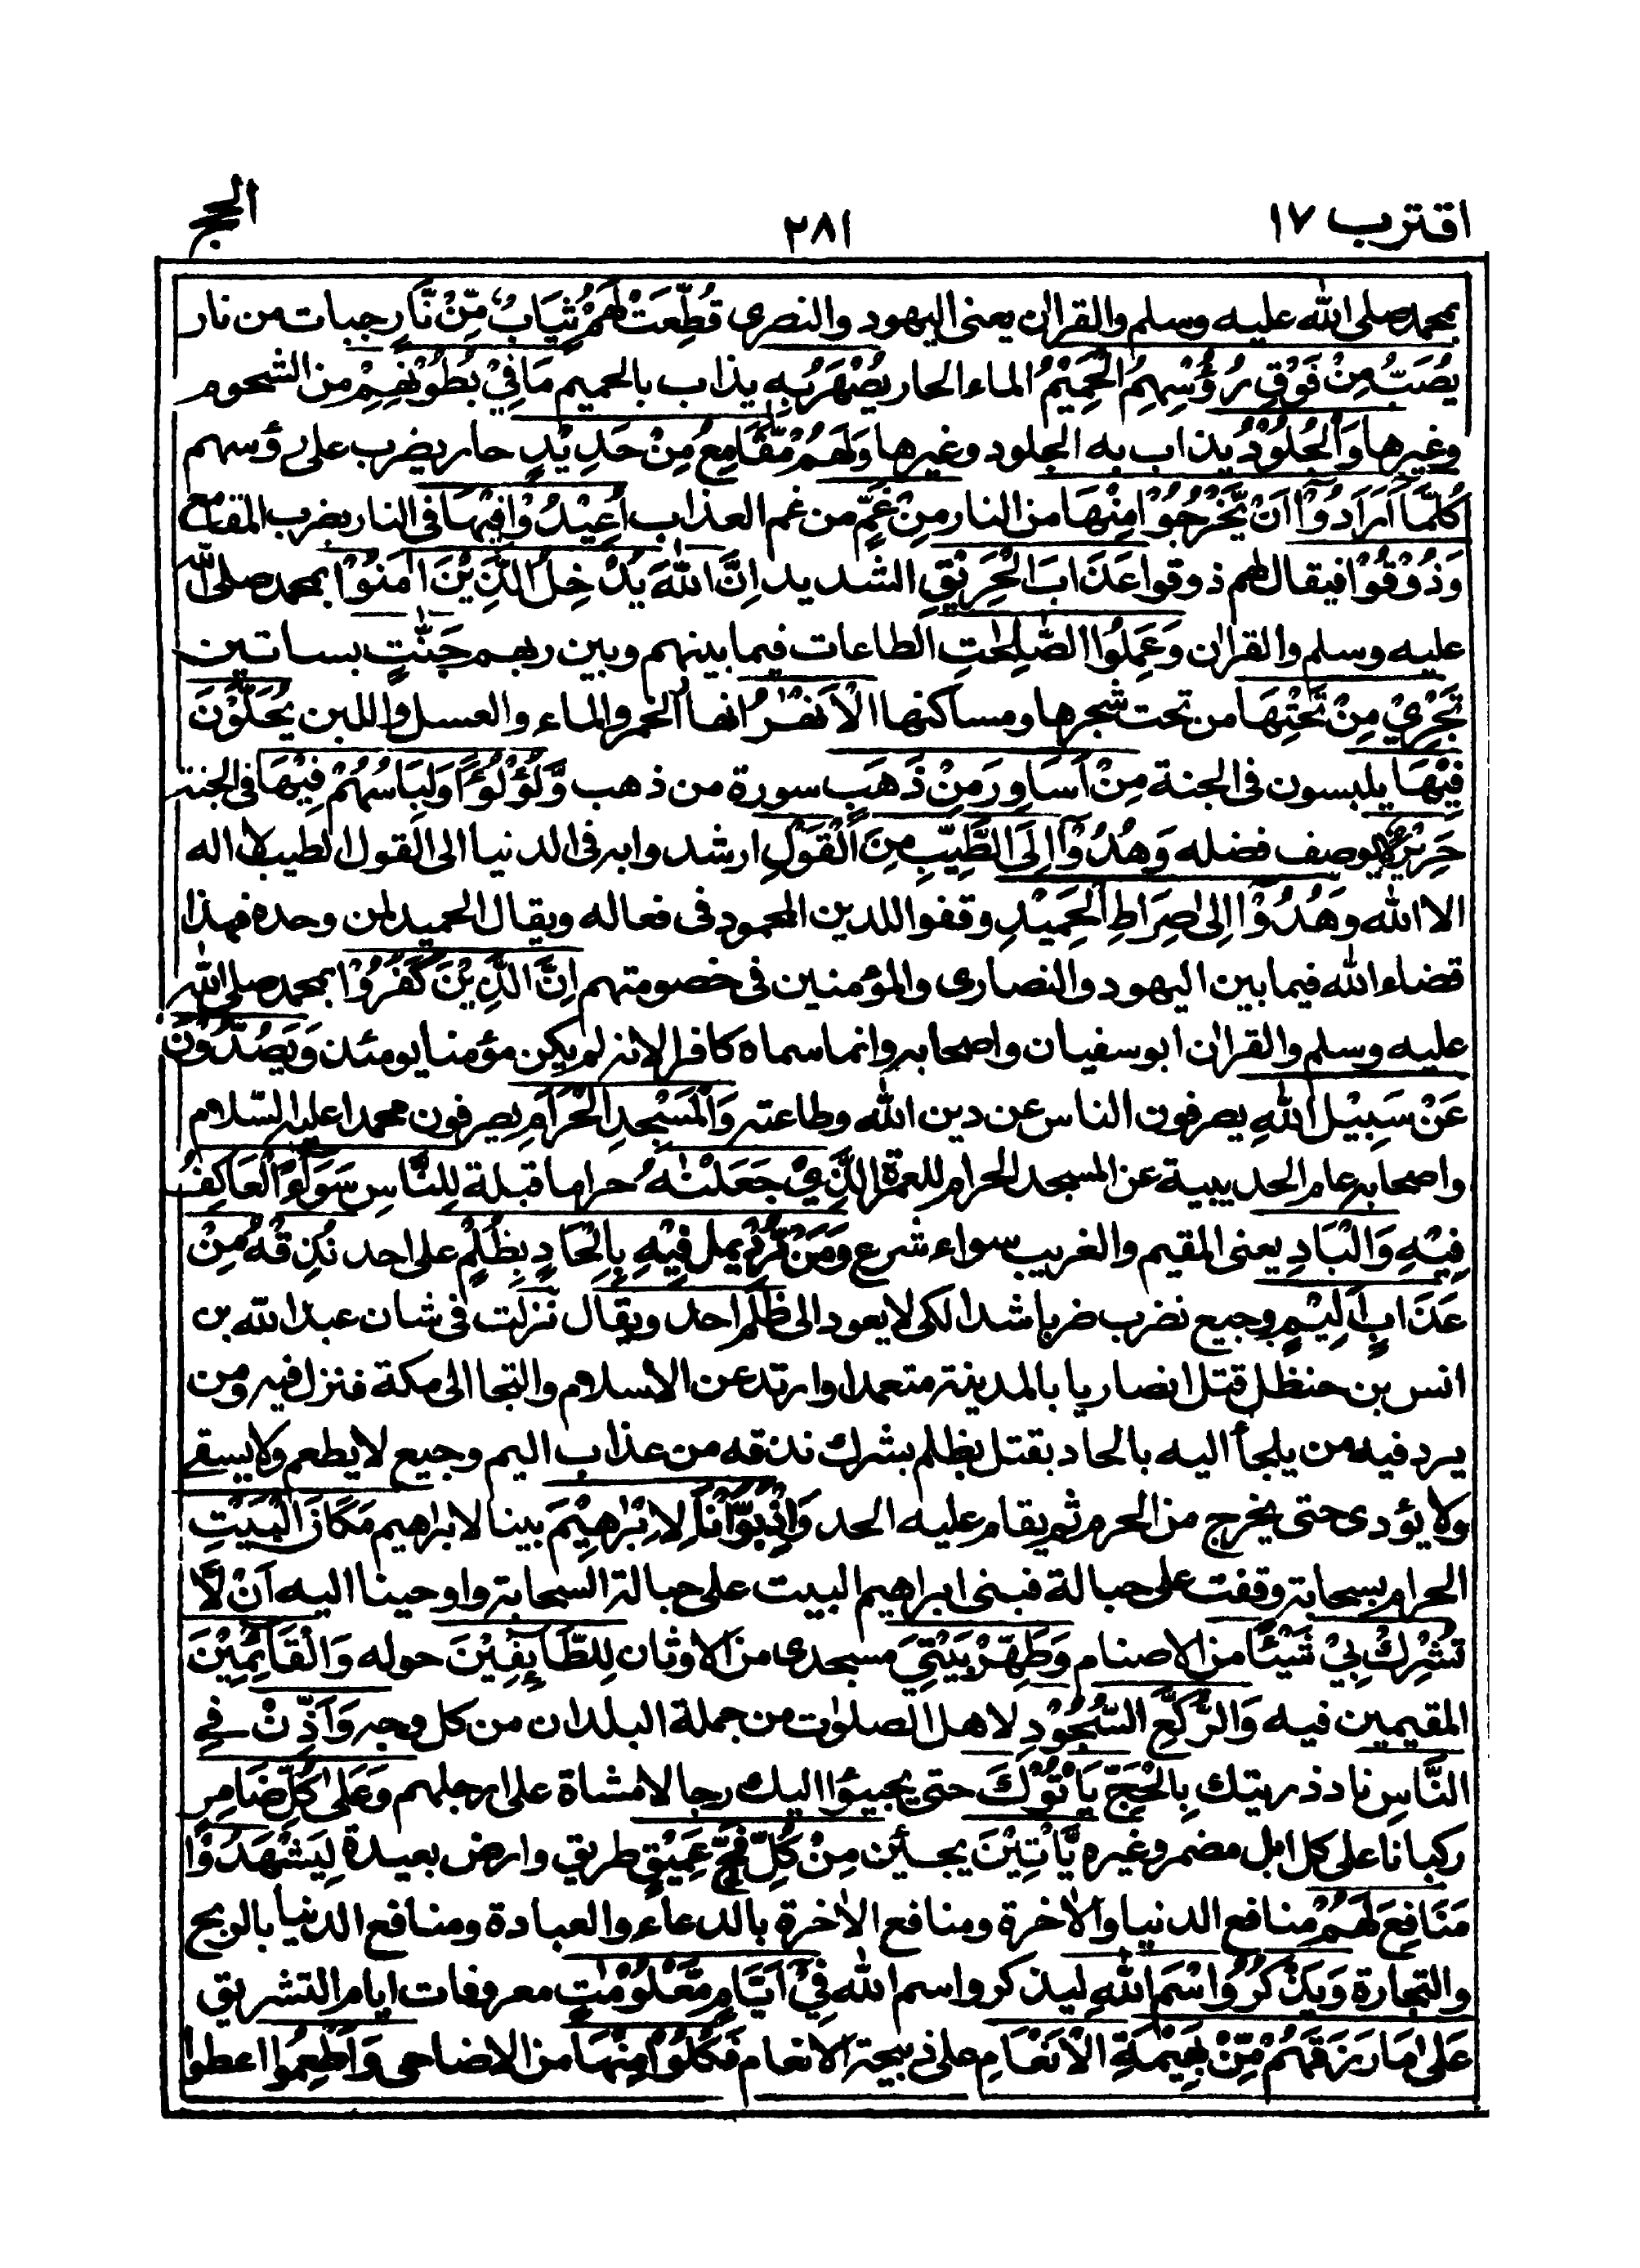 اقترب ١٧
٢٨١
الحج
بمحمد صلى الله عليه وسلم والقرأن يعنى اليهود والنصرى قُطِّعَتْ لَهُمْ ثِيَابٌ مِّنْ نَّارٍ جبات من نار
يُصَبُّ مِنْ فَوْقِ رُءُوْسِهِمُ الْحَمِيْمُ الماء الحار يُصْهَرُ بِهٖ يذاب بالحميم مَا فِيْ بُطُوْنِهِمْ من الشحوم
وغيرها وَالْجُلُوْدُ يذاب به الجلود وغيرها وَلَهُمْ مَّقَامِعُ مِنْ حَدِيْدٍ حار يضرب على رؤسهم
كُلَّمَآ اَرَادُوْٓا اَنْ يَّخْرُجُوْا مِنْهَا من النار مِنْ غَمٍّ من غم العذاب اُعِيْدُوْا فِيْهَا فى النار بضرب المقامع
وَذُوْقُوْا فيقال لهم ذوقوا عَذَابَ الْحَرِيْقِ الشديد اِنَّ اللّٰهَ يُدْخِلُ الَّذِيْنَ اٰمَنُوْا بمحمد صلى الله
عليه وسلم والقرأن وَعَمِلُوا الصّٰلِحٰتِ الطاعات فيما بينهم وبين ربهم جَنّٰتٍ بساتين
تَجْرِيْ مِنْ تَحْتِهَا من تحت شجرها ومساكنها الْاَنْهٰرُ انهار الخمر والماء والعسل واللبن يُحَلَّوْنَ
فِيْهَا يلبسون فى الجنة مِنْ اَسَاوِرَ مِنْ ذَهَبٍ سورة من ذهب وَّلُؤْلُؤًا وَلِبَاسُهُمْ فِيْهَا فى الجنة
حَرِيْرٌ لا يوصف فضله وَهُدُوْٓا اِلَى الطَّيِّبِ مِنَ الْقَوْلِ ارشدوا به فى الدنيا الى القول الطيب لا اله
الا الله وَهُدُوْٓا اِلٰى صِرَاطِ الْحَمِيْدِ وقفوا للدين المحمود فى فعاله ويقال الحميد لمن وحده فهذا
قضاء الله فيما بين اليهود والنصارى والمؤمنين فى خصومتهم اِنَّ الَّذِيْنَ كَفَرُوْا بمحمد صلى الله
عليه وسلم والقرأن ابوسفيان واصحابه وانما سماه كافرا لانه لم يكن مؤمنا يومئذ وَيَصُدُّوْنَ
عَنْ سَبِيْلِ اللّٰهِ يصرفون الناس عن دين الله وطاعته وَالْمَسْجِدِ الْحَرَامِ يصرفون محمدا عليه السلام
واصحابه عام الحديبية عن المسجد الحرام للعمرة الَّذِيْ جَعَلْنٰهُ حراما قبلة لِلنَّاسِ سَوَآءَ ۨالْعَاكِفُ
فِيْهِ وَالْبَادِ يعنى المقيم والغريب سواء شرع وَمَنْ يُّرِدْ يمل فِيْهِ بِاِلْحَادٍ بِظُلْمٍ على احد نُذِقْهُ مِنْ
عَذَابٍ اَلِيْمٍ وجيع نضرب ضربا شدا لكى لا يعود الى ظلم احد ويقال نزلت فى شان عبد الله بن
انس بن حنظل قتل انصاريا بالمدينة متعمدا وارتد عن الاسلام والتجا الى مكة فنزل فيه ومن
يرد فيه من يلجأ اليه بالحاد بقتل بظلم بشرك نذقه من عذاب اليم وجيع لا يطعم ولا يسقے
ولا يؤدى حتى يخرج من الحرم ثم يقام عليه الحد وَاِذْ بَوَّاْنَا لِاِبْرٰهِيْمَ بينا لابراهيم مَكَانَ الْبَيْتِ
الحرام بسحابة وقفت على حبالة فبنى ابراهيم البيت على حبالة السحابة واوحينا اليه اَنْ لَّا
تُشْرِكْ بِيْ شَيْئًا من الاصنام وَطَهِّرْ بَيْتِيَ مسجدى من الاوثان لِلطَّآئِفِيْنَ حوله وَالْقَآئِمِيْنَ
المقيمين فيه وَالرُّكَّعِ السُّجُوْدِ لاهل الصلوات من جملة البلدان من كل وجه وَاَذِّنْ فِے
النَّاسِ ناد ذريتك بِالْحَجِّ يَاْتُوْكَ حتى يجيبؤا اليك رجالا مشاة على ارجلهم وَعَلٰى كُلِّ ضَامِرٍ
ركبانا على كل ابل مضمر وغيره يَّاْتِيْنَ يجئين مِنْ كُلِّ فَجٍّ عَمِيْقٍ طريق وارض بعيدة لِيَشْهَدُوْا
مَنَافِعَ لَهُمْ منافع الدنيا والأخرة ومنافع الأخرة بالدعاء والعبادة ومنافع الدنيا بالربح
والتجارة وَيَذْكُرُوا اسْمَ اللّٰهِ ليذكروا اسم الله فِيْٓ اَيَّامٍ مَّعْلُوْمٰتٍ معروفات ايام التشريق
عَلٰى مَا رَزَقَهُمْ مِّنْ بَهِيْمَةِ الْاَنْعَامِ على ذبيحة الانعام فَكُلُوْا مِنْهَا من الاضاحى وَاَطْعِمُوا اعطوا